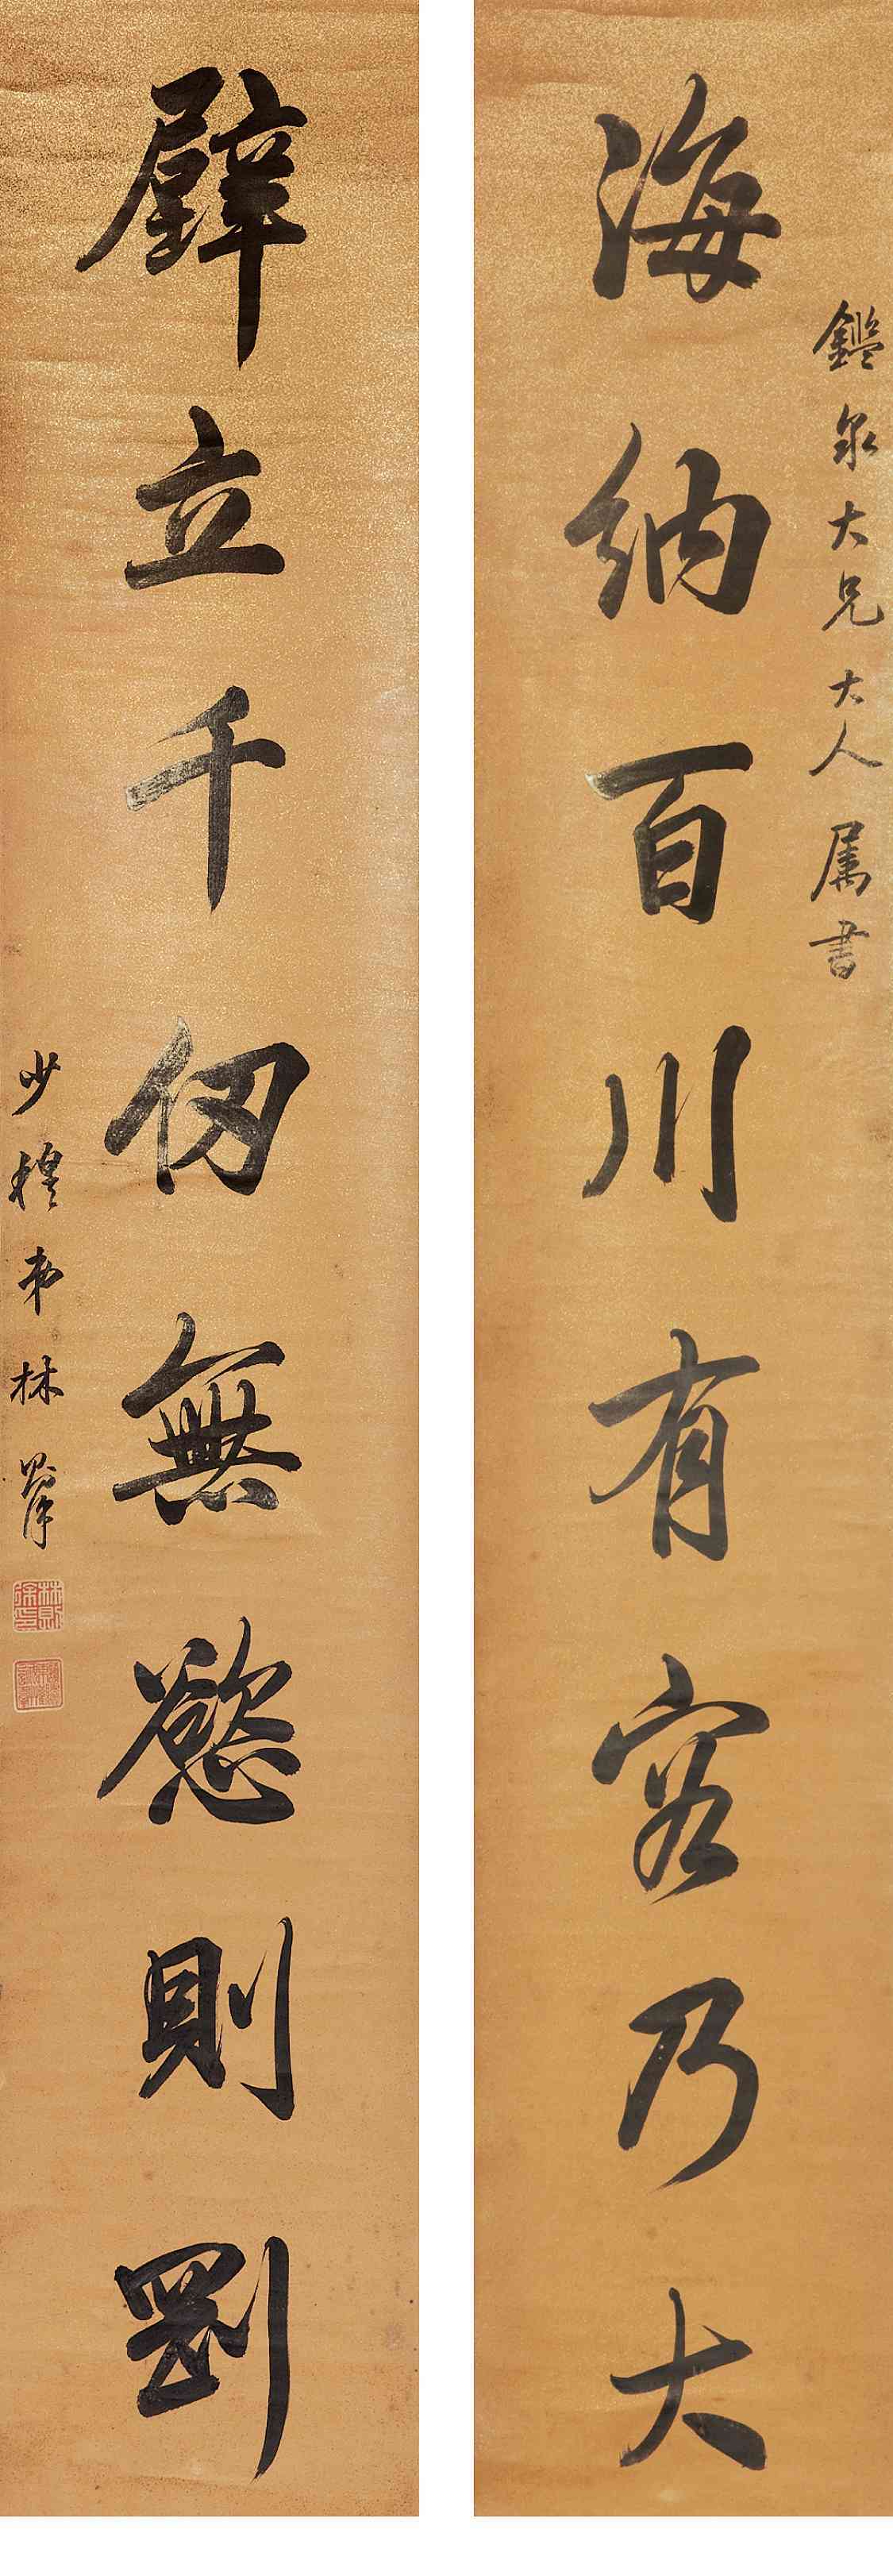 鑑泉大兄大人属書
海納百川有容乃大
壁立千仞無慾則剛
少穆弟林則徐
林則徐印